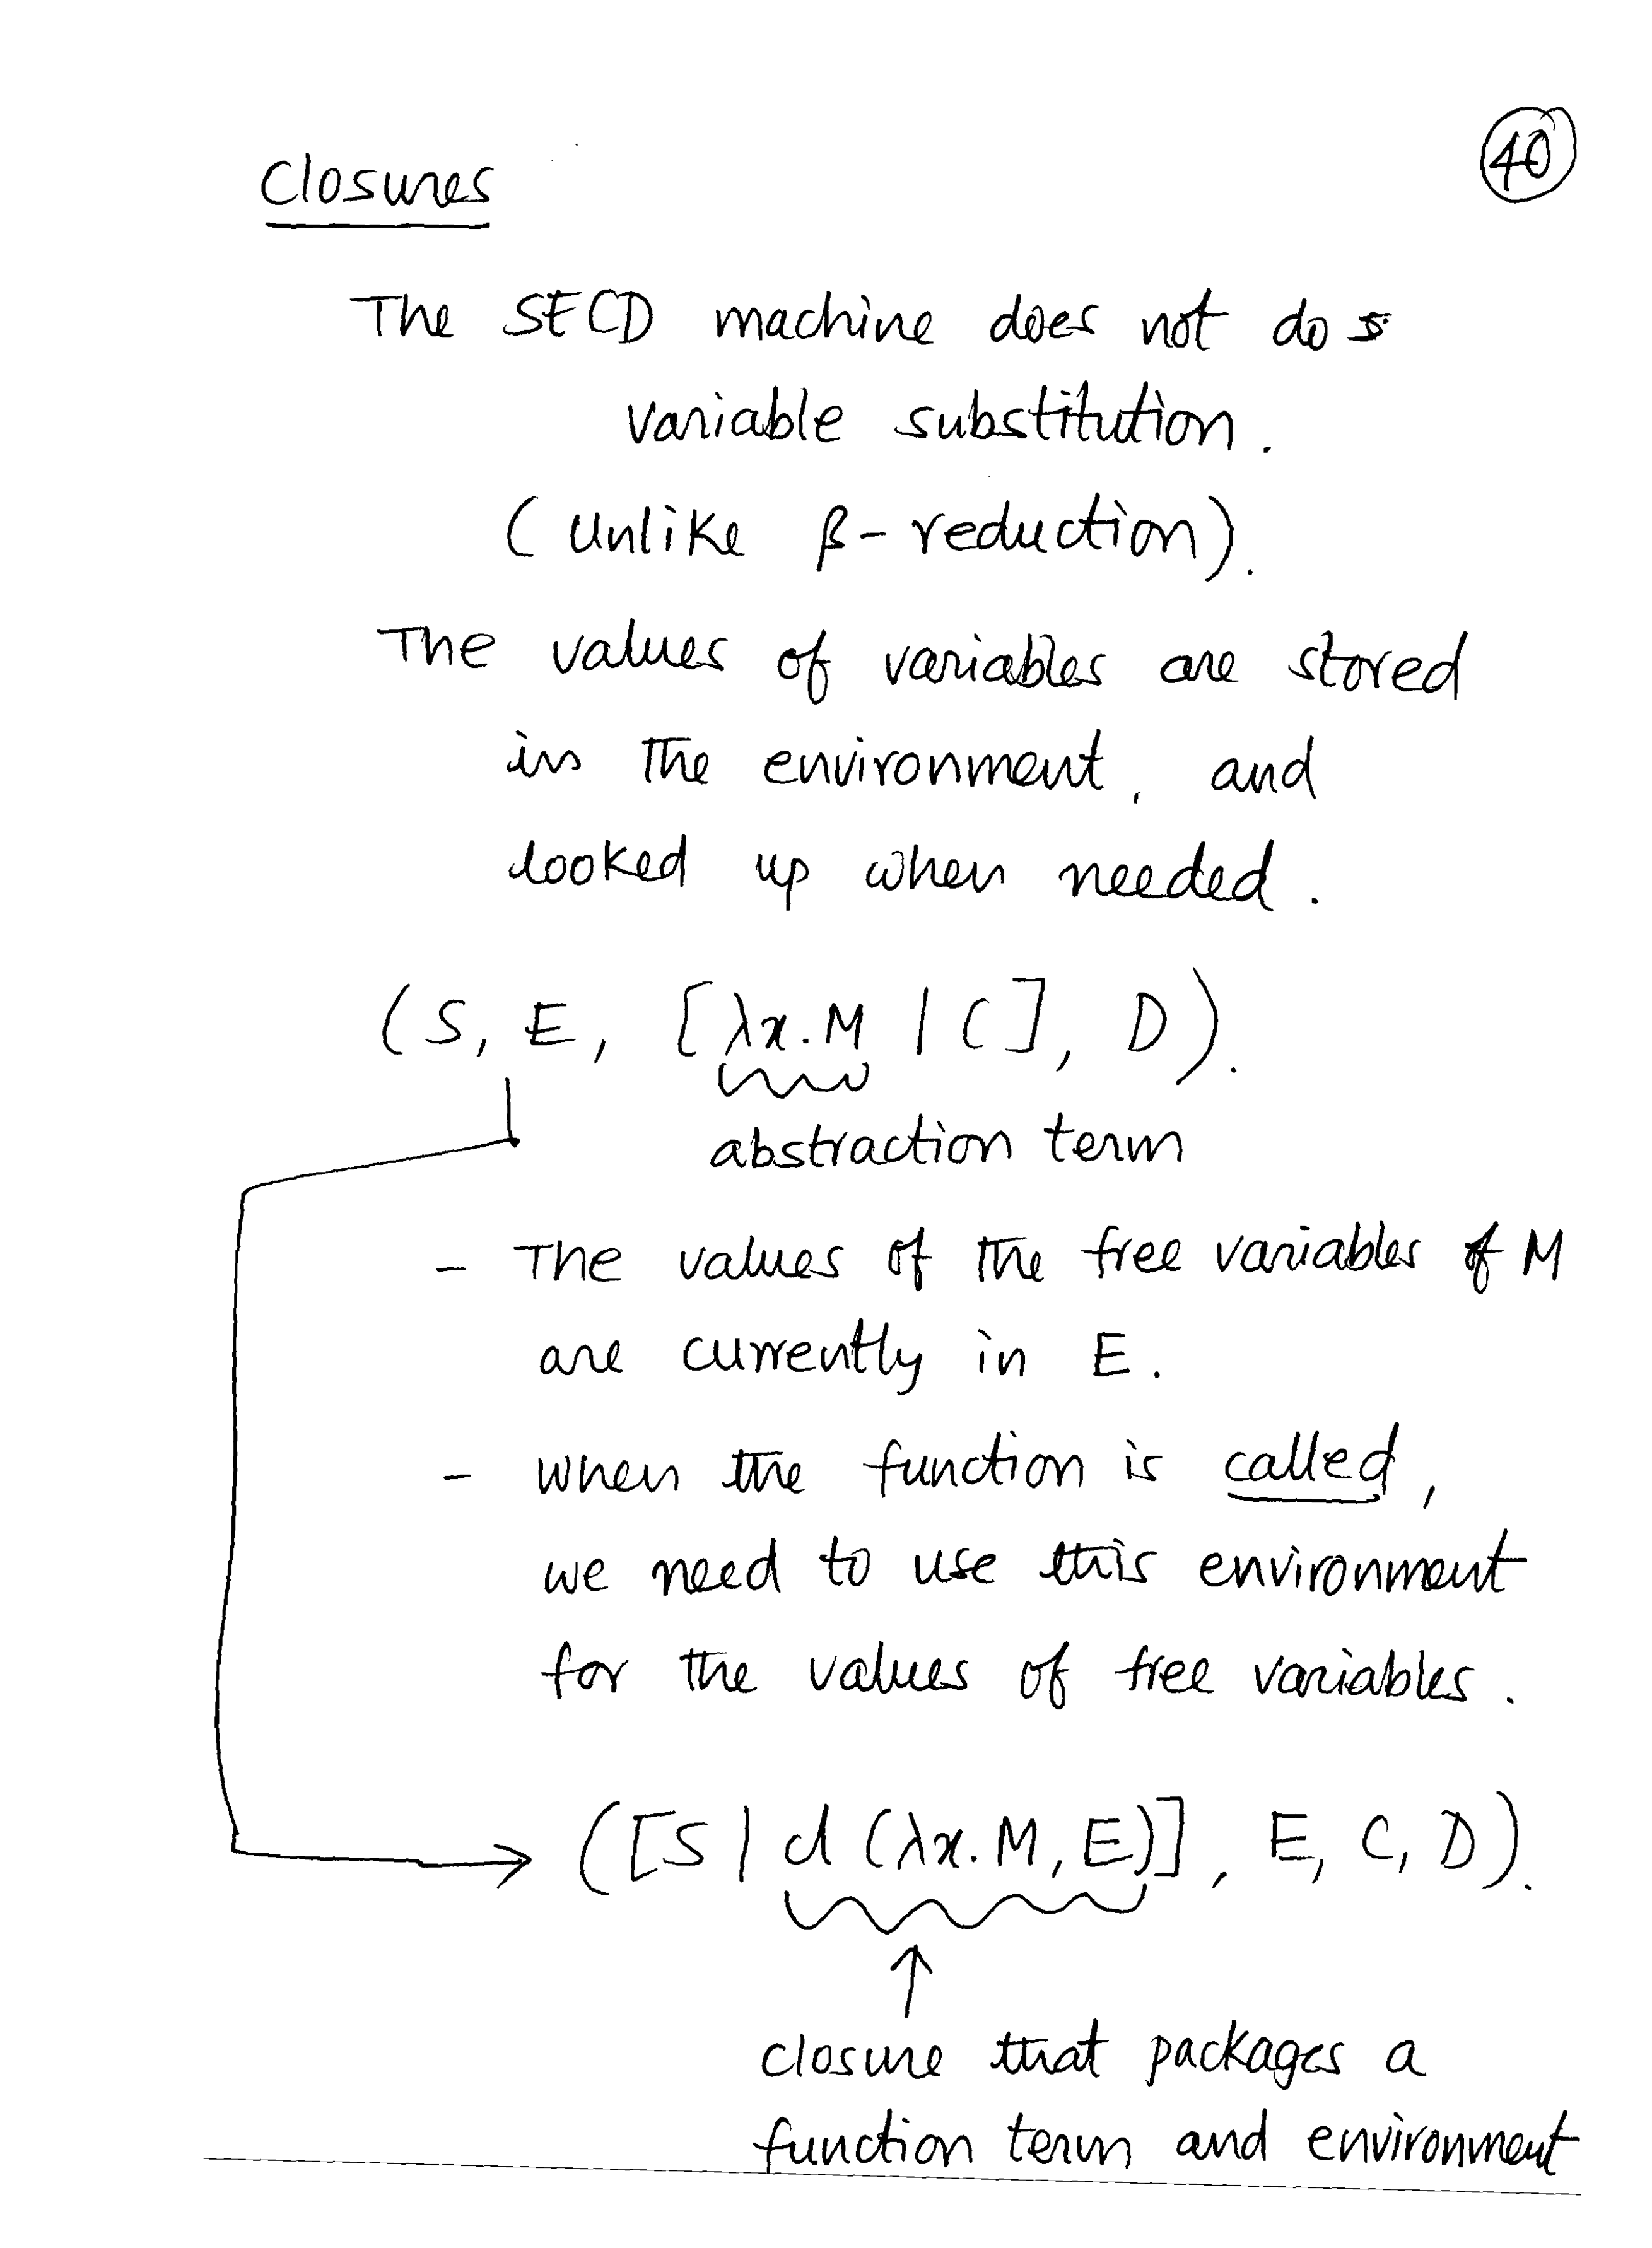 40
Closures
The SECD machine does not do
variable substitution.
(Unlike β-reduction).
The values of variables are stored
in the environment, and
looked up when needed.
(S, E, [λx.M | C], D).
abstraction term
- The values of the free variables of M
are currently in E.
- when the function is called,
we need to use this environment
for the values of free variables.
([S | cl (λx.M, E)], E, C, D).
closure that packages a
function term and environment